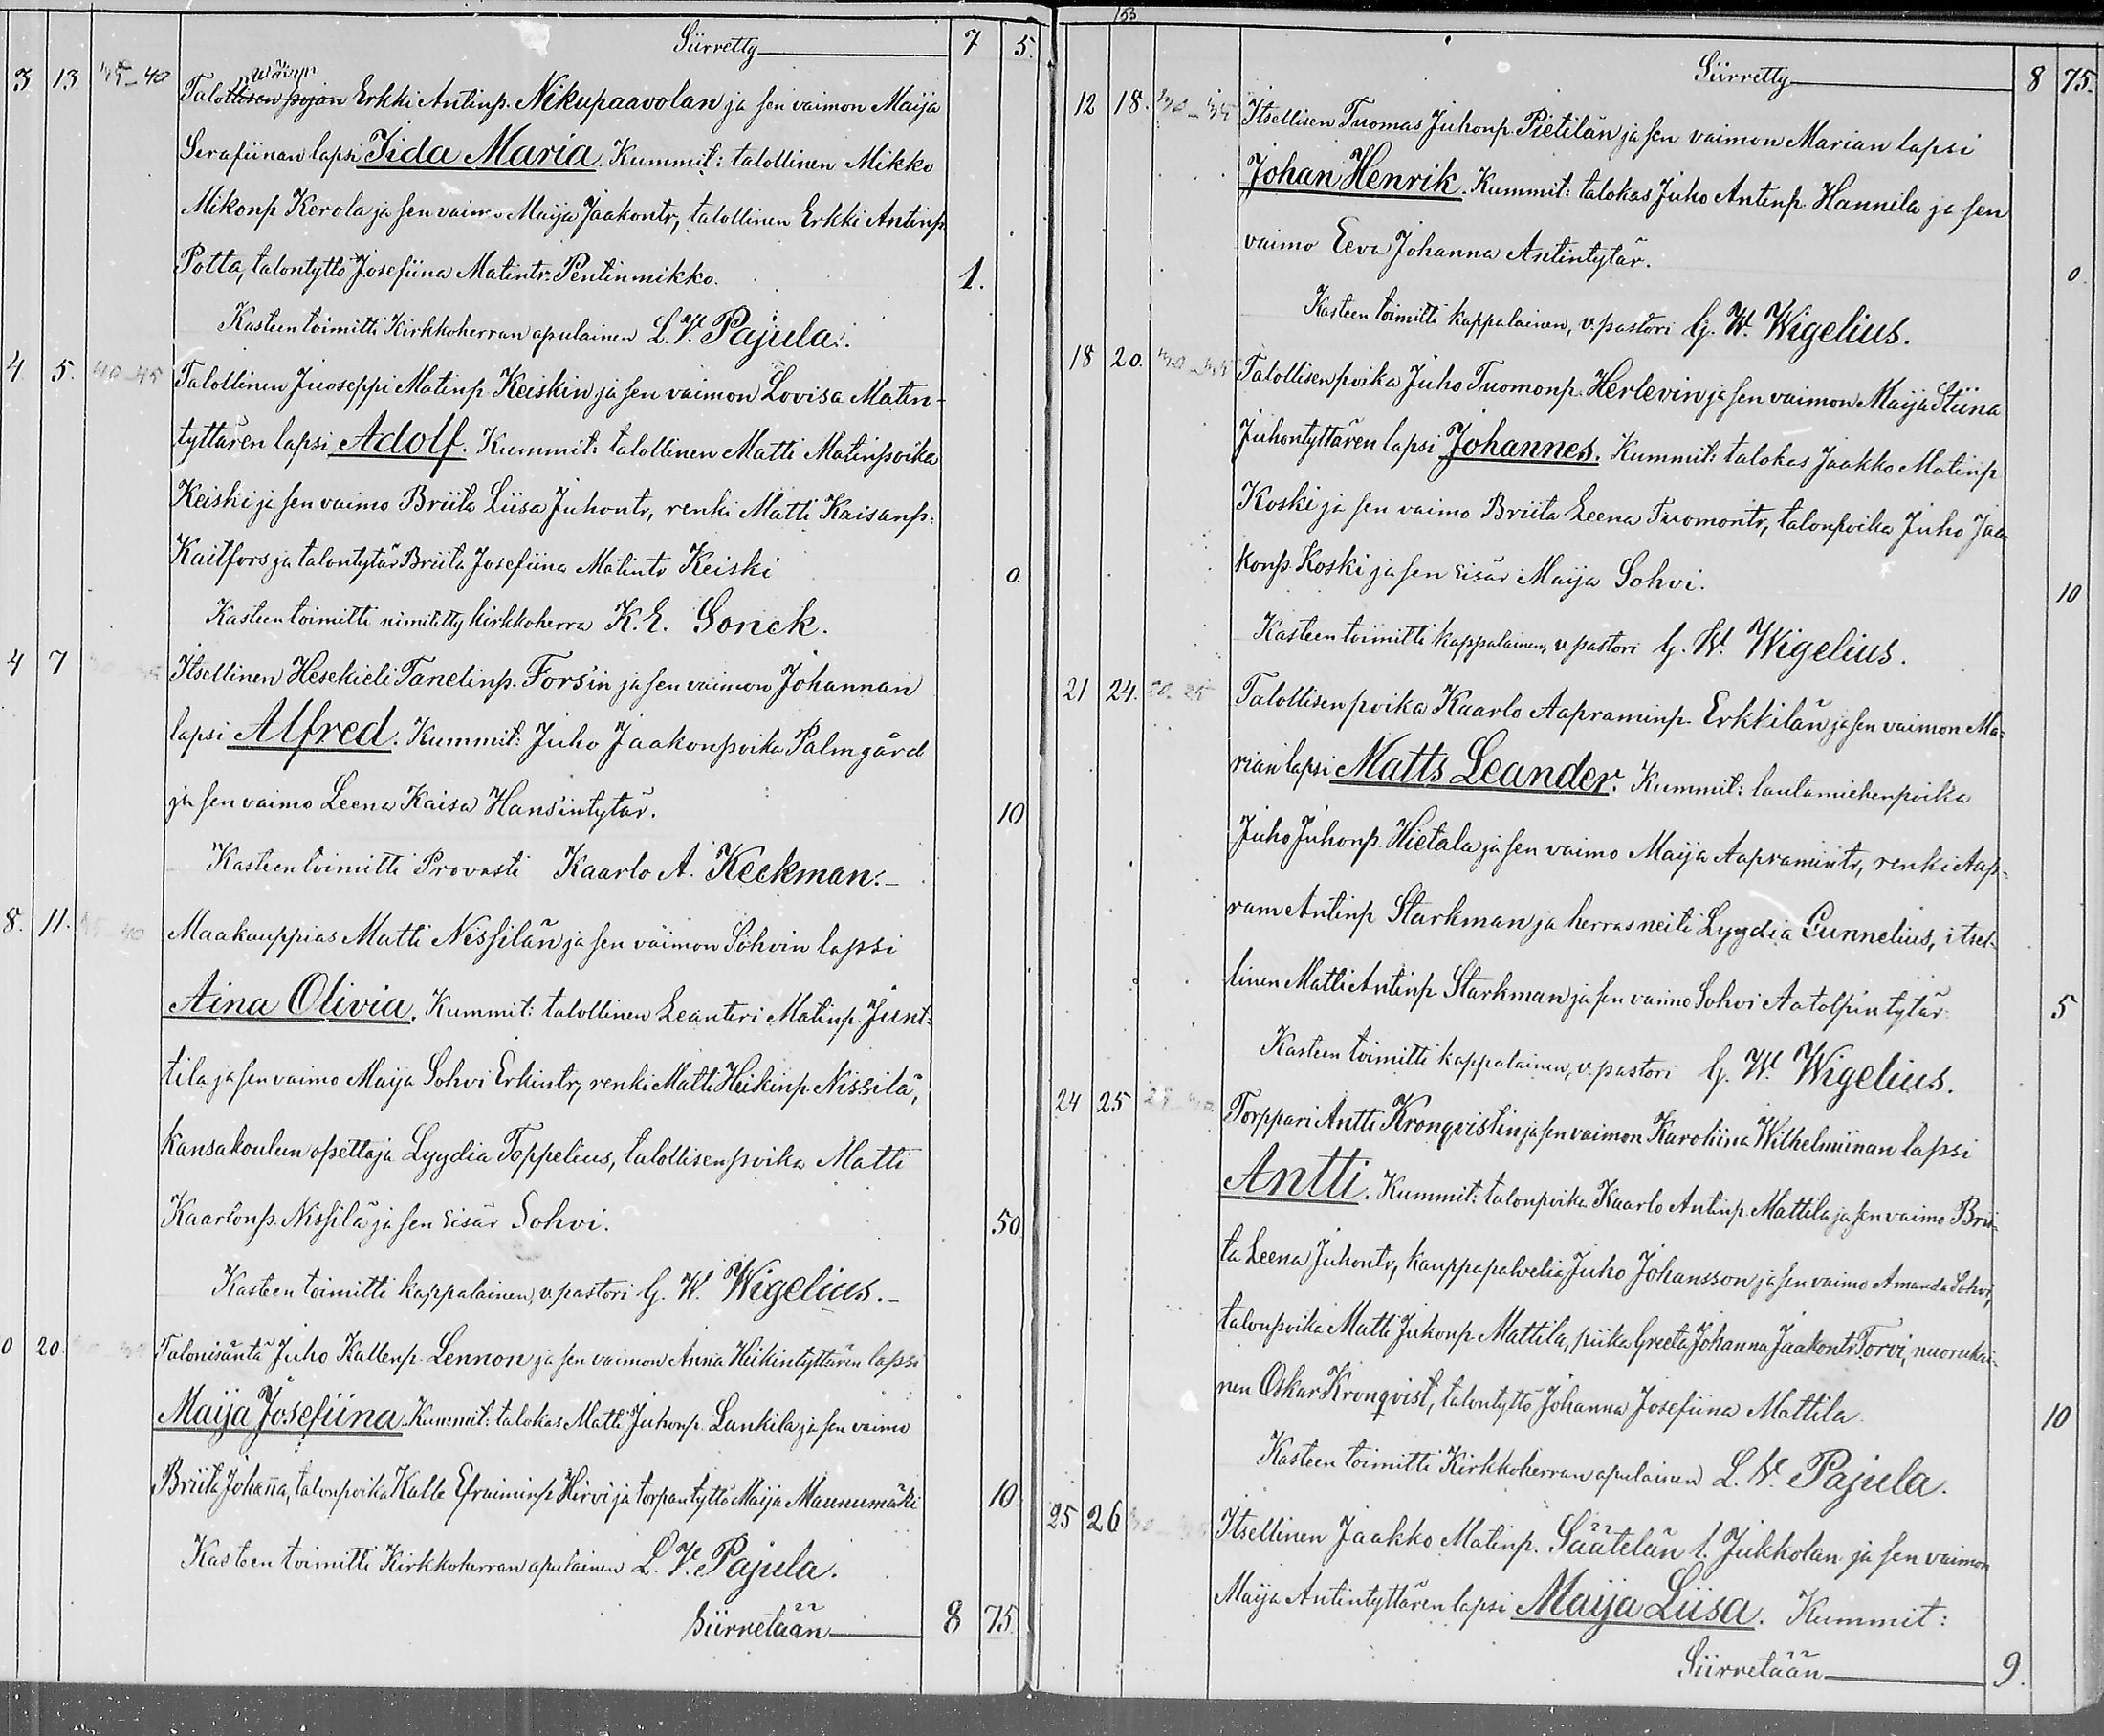 Siirretty 7 5.
3. 13. 35-40 Talollisen pojan vävyn Erkki Antinp. Nikupaavolan ja sen vaimon Maija
Serafiinan lapsi Iida Maria. Kummit: talollinen Mikko
Mikonp Kerola ja sen vaimo Maija Jaakontr, talollinen Erkki Antinp.
Potta, talontyttö Josefiina Matintr. Pentinmikko. 1.
Kasteen toimitti Kirkkoherran apulainen L. V. Pajula.
4. 5. 40-45 Talollinen Juoseppi Matinp Keiskin ja sen vaimon Lovisa Matin-
tyttären lapsi Adolf. Kummit: talollinen Matti Matinpoika
Keiski ja sen vaimo Briita Liisa Juhontr, renki Matti Kaisanp.
Kaitfors ja talontytär Briita Josefiina Matintr Keiski 0.
Kasteen toimitti nimitetty kirkkoherra K. E. Sonck.
4 7 Itsellinen Hesekieli Tanelinp. Fors'in ja sen vaimon Johannan
lapsi Alfred. Kummit: Juho Jaakonpoika Palmgård
ja sen vaimo Leena Kaisa Hans'intytär. 10
Kasteen toimitti Provasti Kaarlo A. Keckman.-
8. 11. 35-40 Maakauppias Matti Nissilän ja sen vaimon Sohvin lapsi
Aina Olivia. Kummit: talollinen Leanteri Matinp. Junt-
tila ja sen vaimo Maija Sohvi Erkintr, renki Matti Heikinp. Nissilä,
kansakoulun opettaja Lyydia Toppelius, talollisenpoika Matti
Kaarlonp. Nissilä ja sen sisar Sohvi. 50
Kasteen toimitti kappalainen, v. pastori G. W. Wigelius.-
0 20. Talonisäntä Juho Kallenp. Lennon ja sen vaimon Anna Heikintyttären lapsi
Maija Josefiina. Kummit: talokas Matti Juhonp. Lankila ja sen vaimo
Briita Johanna, talonpoika Kalle Efraiminp Hirvi ja torpantyttö Maija Maunumäki 10
Kasteen toimitti Kirkkoherran apulainen L. V. Pajula.
Siirretään 8 75.
153
Siirretty 8 75.
12 18. 30-35 Itsellisen Tuomas Juhonp. Pietilän ja sen vaimon Marian lapsi
Johan Henrik. Kummit: talokas Juho Antinp. Hannila ja sen
vaimo Eeva Johanna Antintytär. 0.
Kasteen toimitti kappalainen, v. pastori G. W. Wigelius.
18 20. 30-35 Talollisenpoika Juho Tuomonp. Herlevin ja sen vaimon Maija Stiina
Juhontyttären lapsi Johannes. Kummit: talokas Jaakko Matinp
Koski ja sen vaimo Briita Leena Tuomontr, talonpoika Juho Jaa
konp. Koski ja sen sisar Maija Sohvi. 10
Kasteen toimitti kappalainen, v. pastori G. W. Wigelius.
21 24. 20-25 Talollisen poika Kaarlo Aapraminp. Erkkilän ja sen vaimon Ma-
rian lapsi Matts Leander. Kummit: lautamiehenpoika
Juho Juhonp. Hietala ja sen vaimo Maija Aapramintr, renki Aap-
ram Antinp Starkman ja herrasneiti Lyydia Cunnelius, itsel-
linen Matti Antinp Starkman ja sen vaimo Sohvi Aatolfintytär. 5
Kasteen toimitti kappalainen, v. pastori G. W. Wigelius.
24 25 Torppari Antti Kronqvistin ja sen vaimon Karoliina Wilhelmiinan lapsi
Antti. Kummit: talonpoika Kaarlo Antinp. Mattila ja sen vaimo Brii-
ta Leena Juhontr, kauppapalvelia Juho Johansson ja sen vaimo Amanda Sohvi,
talonpoika Matti Juhonp Mattila, piika Greeta Johanna Jaakontr. Torvi, nuorukai-
nen Oskar Kronqvist, talontyttö Johanna Josefiina Mattila. 10
Kasteen toimitti Kirkkoherran apulainen L. V. Pajula.
25 26 Itsellinen Jaakko Matinp. Säätelän l. Jukkolan ja sen vaimon
Maija Antintyttären lapsi Maija Liisa. Kummit:
Siirretään 9.